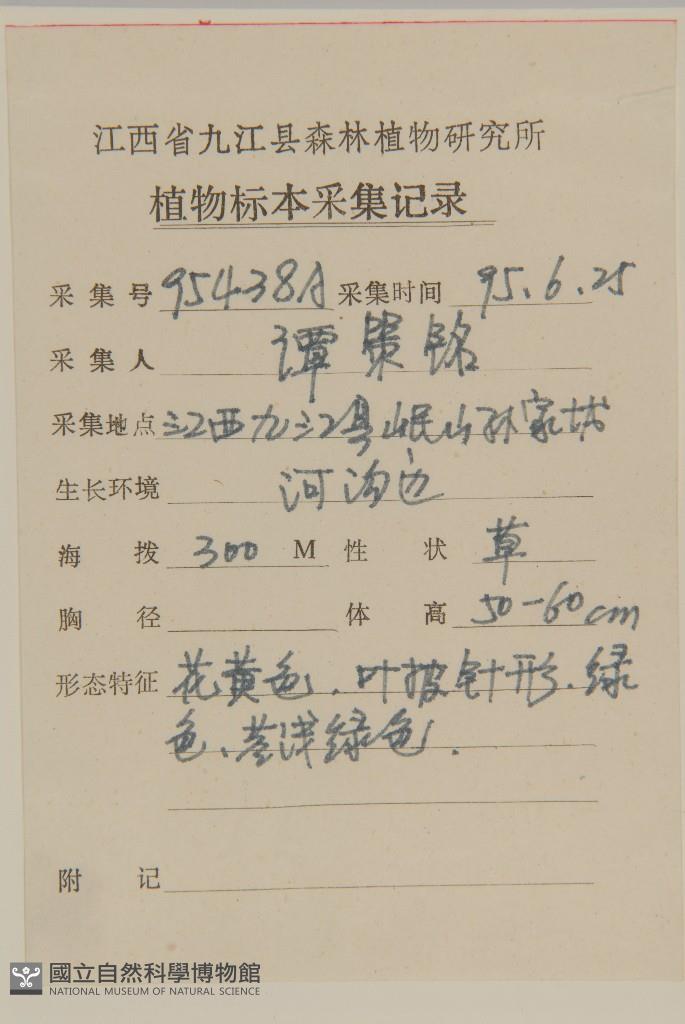 江西省九江县森林植物研究所
植物标本采集记录
采集号 95438A 采集时间 95.6.25
采集人 谭策铭
采集地点 江西九江县岷山孙家坊
生长环境 河沟边
海拨 300 M 性状 草
胸径 体高 50-60cm
形态特征 花黄色、叶披针形、绿
色、茎浅绿色.
附记
國立自然科學博物館
NATIONAL MUSEUM OF NATURAL SCIENCE